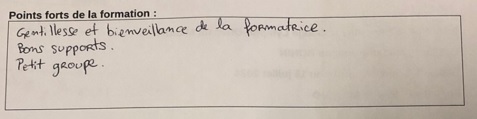 Points forts de la formation :
Gentillesse et bienveillance de la formatrice.
Bons supports.
Petit groupe.